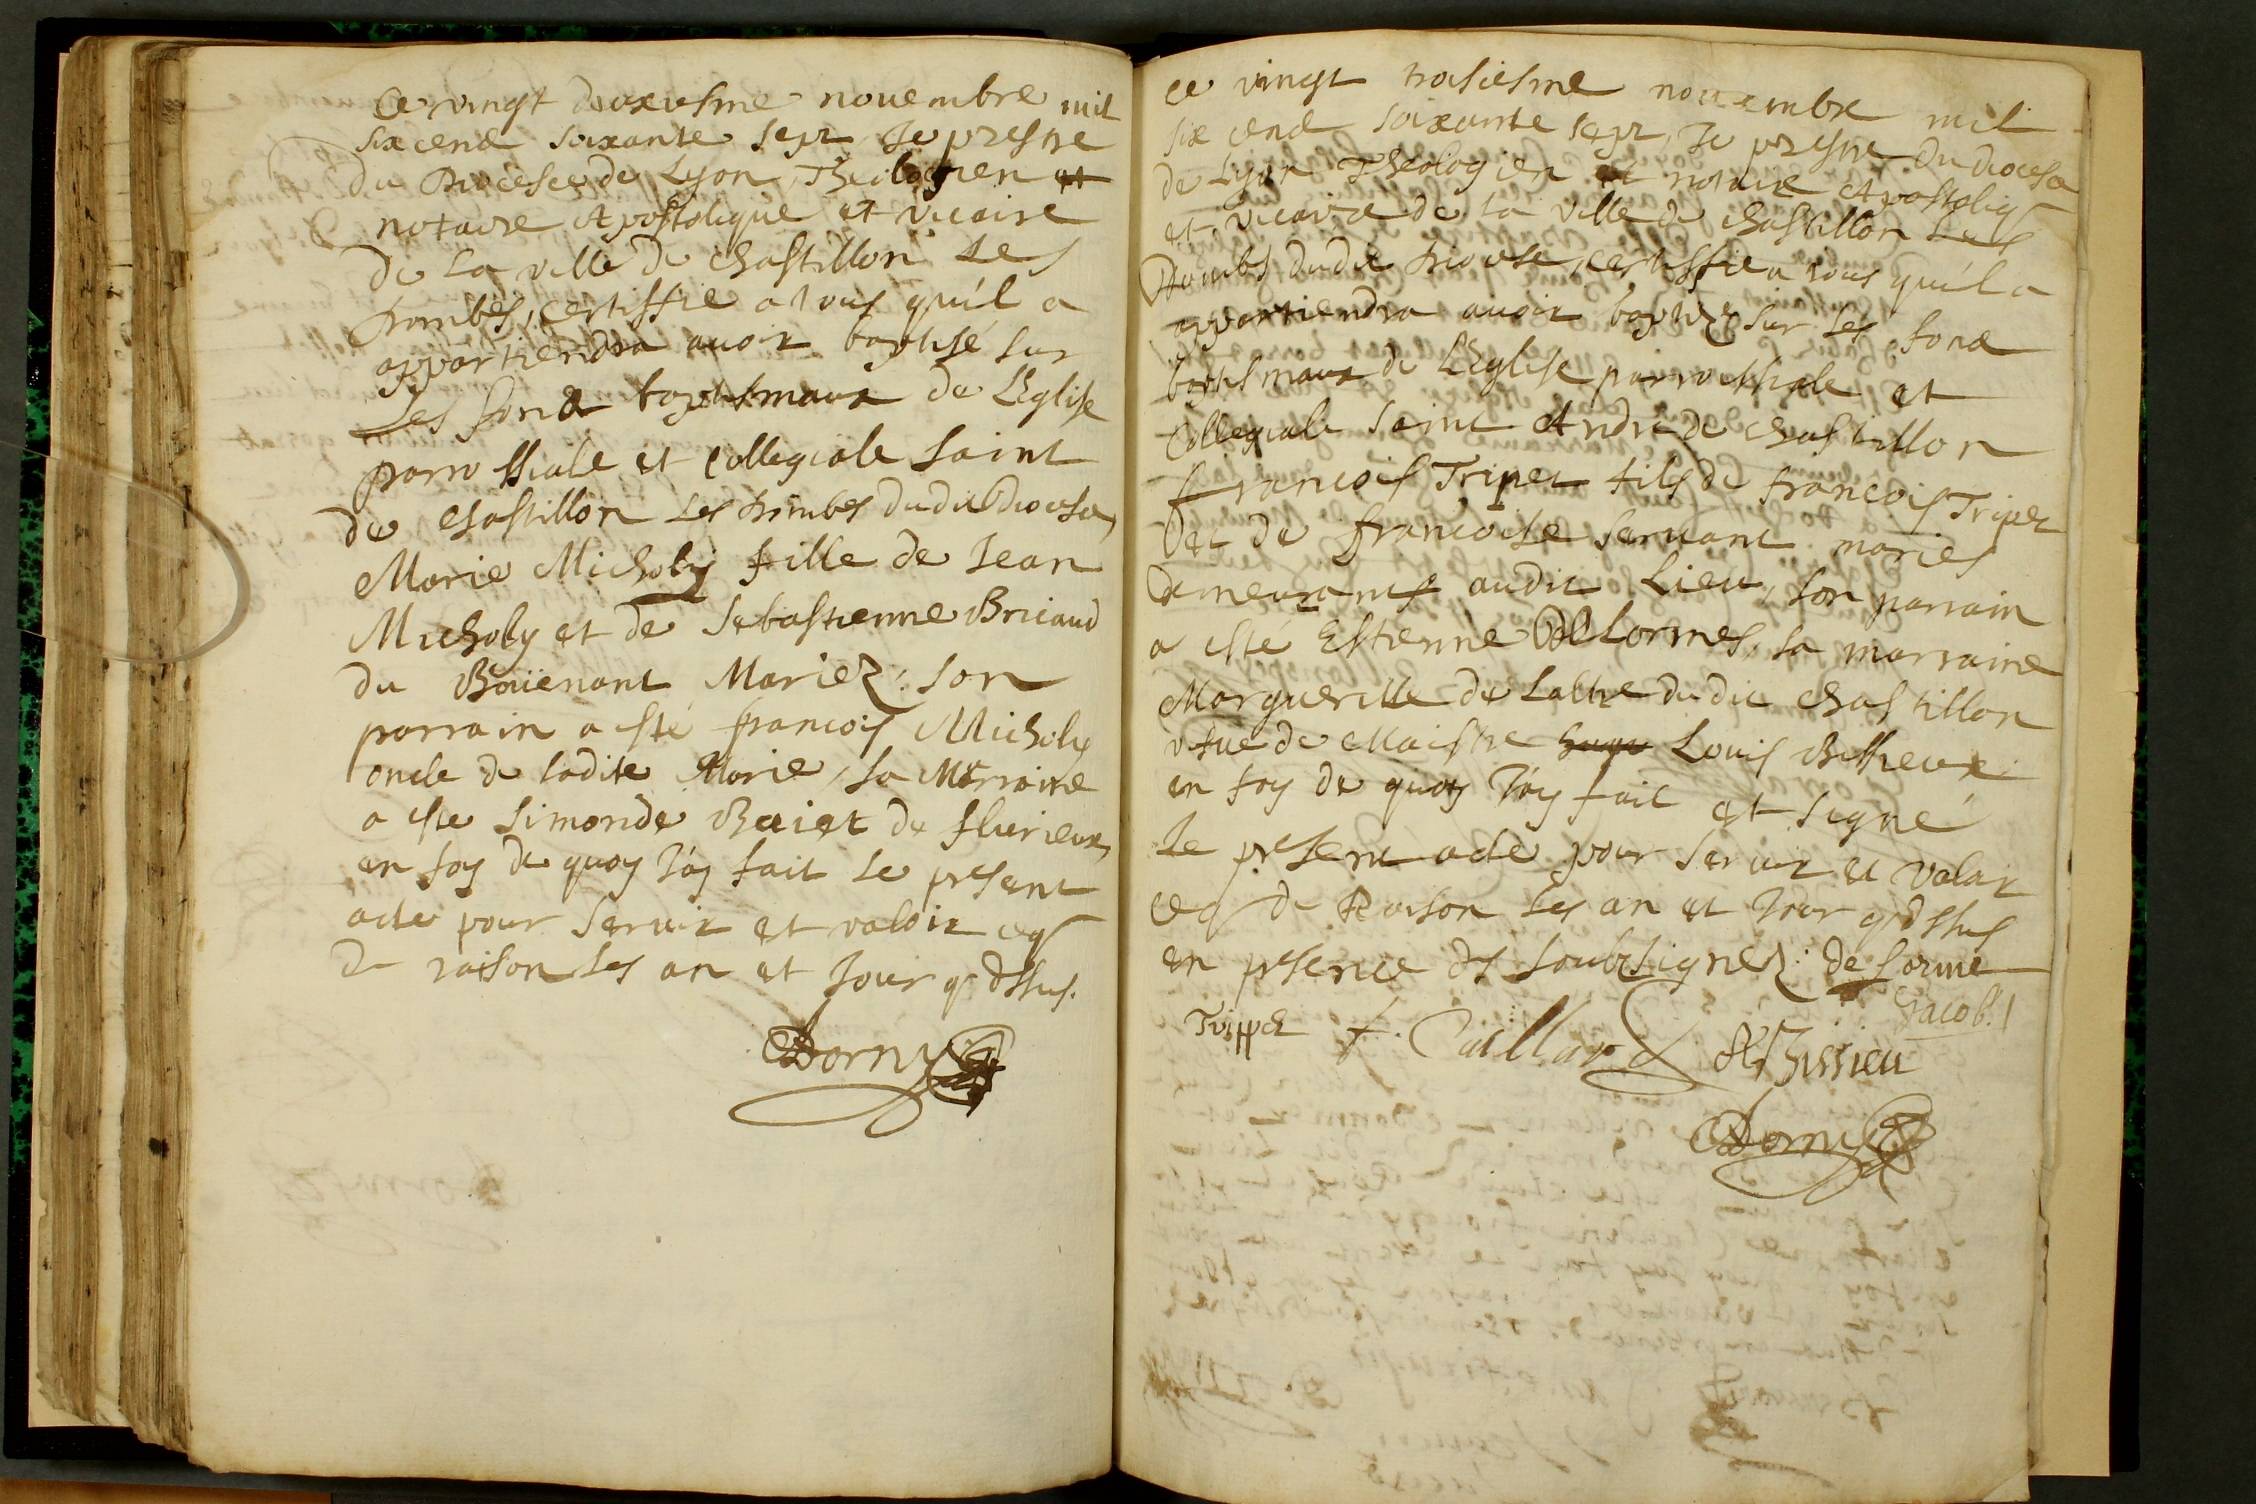 Ce vingt deuxiesme nouembre mil
six cent soixante sept Je prestre
du Diocese de Lyon Theologien et
notaire Apostolique et vicaire
de La ville de chastillon Les
Dombes, certiffie a tous qu'il a
appartiendra auoir baptisé sur
Les fond baptismaux de L'Eglise
parrossiale et collegiale saint
de chastillon Les Dombes dudit Diocese,
Marie Micholy fille de Jean
Micholy et de Sebastienne Bricaud
du Boüenant Mariez: son
parrain a esté francois Micholy
oncle de ladite Marie, sa Marraine
a este Simonde de flurieux,
en foy de quoy J'ay fait Le present
acte pour seruir et valoir ceq
de raison Les an et Jour q dssus.
Dorny
ce vingt troisiesme nouembre mil
six cent soixante sept, Je prestre du diocese
de Lyon Theologien et notaire Apostoliq
et vicaire de La ville de chastillon Les
Dombes dudit Diocese, certiffie a tous qu'il a
appartiendra auoir baptizé sur Les fond
baptismaux de L'Eglise parrossiale et
Collegiale saint André de chastillon
francois Tripet fils de francois Tripet
et de francoise seruant mariés
demeurants audit Lieu, son parrain
a esté Estienne DeLormes, sa marraine
Margueritte de Labtre dudit chastillon
vesue de Maistre Louis Bissieux
en foy de quoy J'ay fait et signé
Le present acte pour seruir et valoir
ceq de Raison Les an et Jour q dssus
en presence des soubsignez: de Lorme
Jacob.
Trippet f. Caillard Bissieu
Dorny